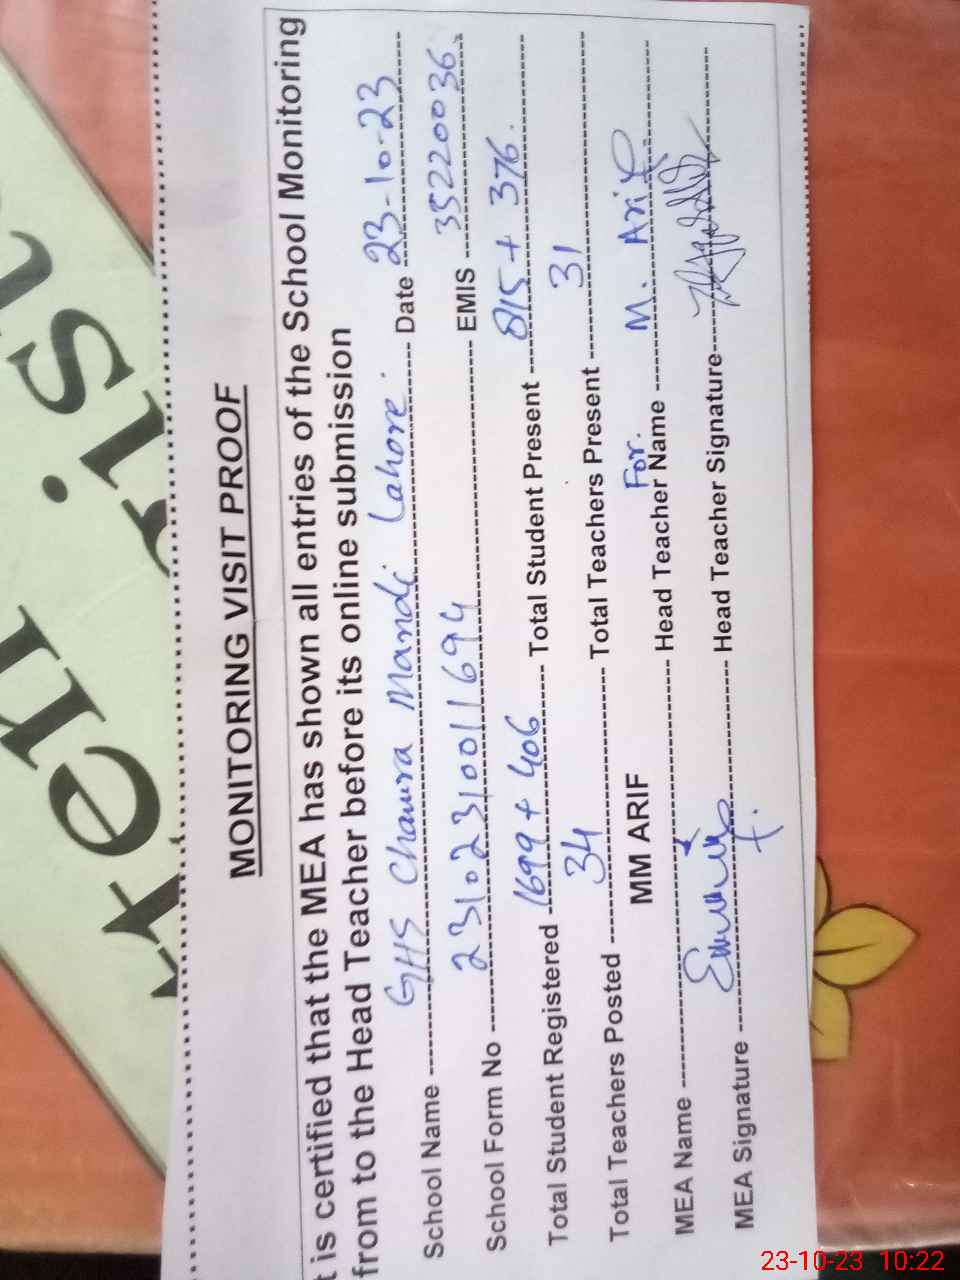 MONITORING VISIT PROOF
t is certified that the MEA has shown all entries of the School Monitoring
from to the Head Teacher before its online submission
School Name GHS Chawra Mandi Lahore. Date 23-10-23
School Form No 2310231001 1694 EMIS 35220036.
Total Student Registered 1699 + 406 Total Student Present 815 + 376.
Total Teachers Posted 34 Total Teachers Present 31
MEA Name MM ARIF Head Teacher Name For. M. Arif
MEA Signature Head Teacher Signature
23-10-23 10:22